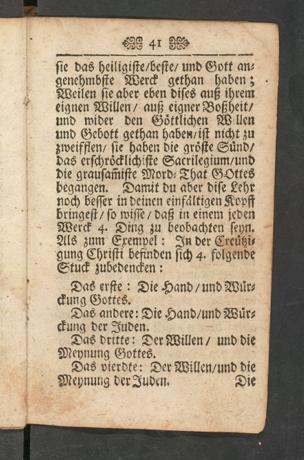 41
sie das heiligiste/beste/ und Gott an-
genehmbste Werck gethan haben;
Weilen sie aber eben dises auß ihrem
eignen Willen/ auß eigner Boßheit/
und wider den Göttlichen Willen
und Gebott gethan haben/ ist nicht zu
zweifflen/ sie haben die gröste Sünd/
das erschröcklichiste Sacrilegium/und
die grausamiste Mord-That GOttes
begangen. Damit du aber dise Lehr
noch besser in deinen einfältigen Kopff
bringest/ so wisse/ daß in einem jeden
Werck 4. Ding zu beobachten seyn.
Als zum Exempel: In der Creützi-
gung Christi befinden sich 4. folgende
Stuck zubedencken:
Das erste: Die Hand/ und Wür-
ckung Gottes.
Das andere: Die Hand/und Wür-
ckung der Juden.
Das dritte: Der Willen/ und die
Meynung Gottes.
Das vierdte: Der Willen/und die
Meynung der Juden. Die